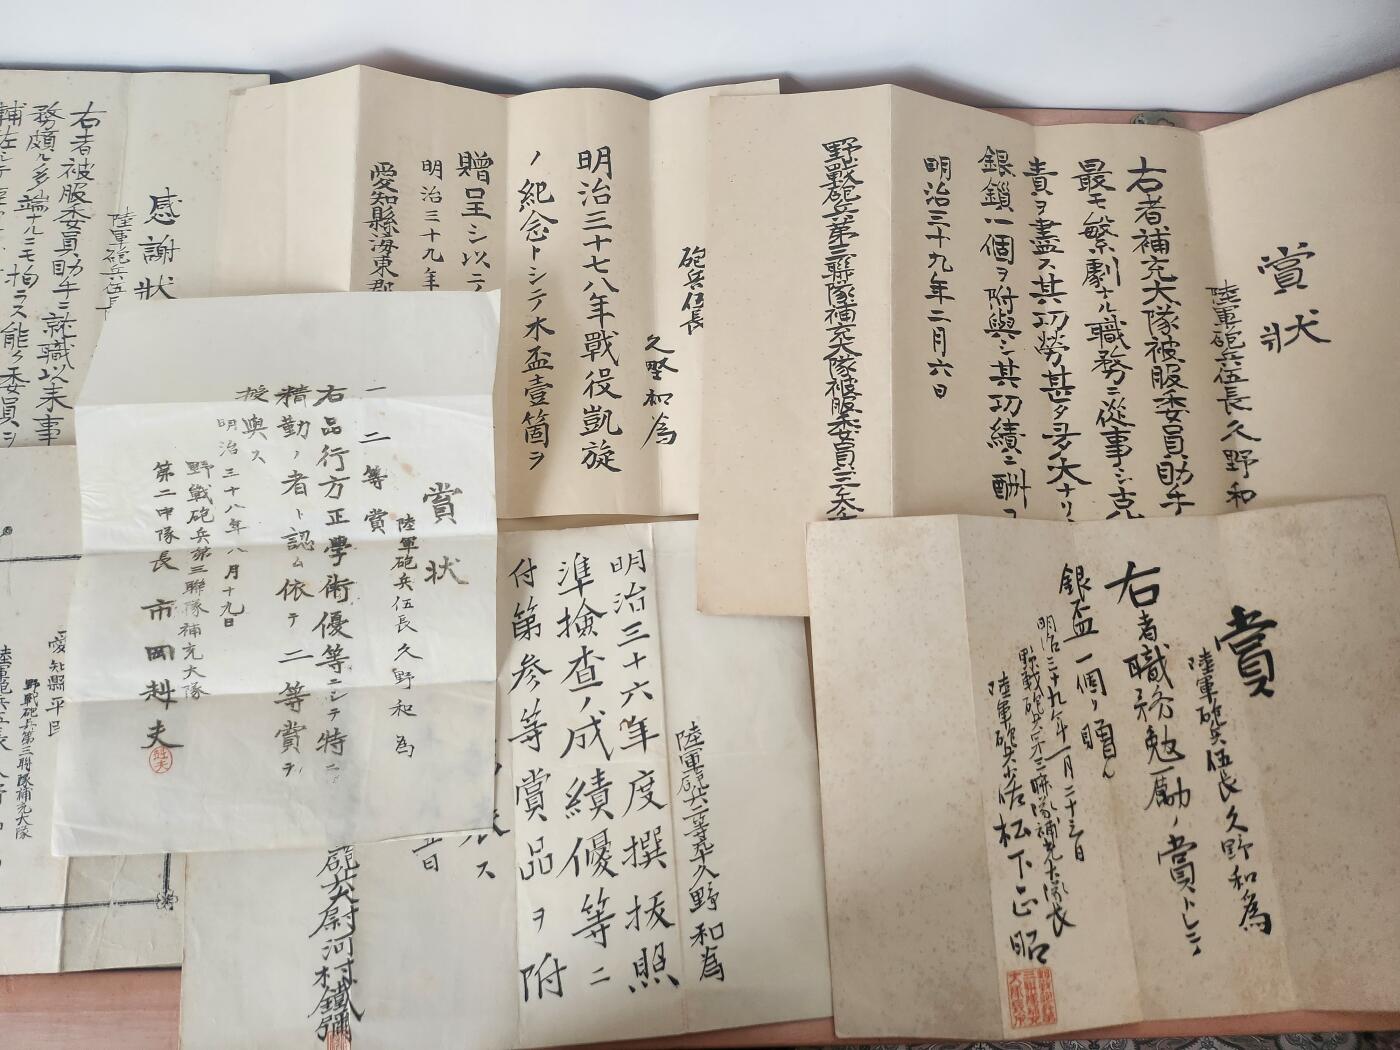 賞状
陸軍砲兵伍長久野和
右者補充大隊被服委員助手
最モ繁劇ナル職務ニ従事シ克
責ヲ盡ス其功勞甚タ多大ナリ
銀鎖一個ヲ附與シ其功績ニ酬
明治三十九年二月六日
野戰砲兵第三聯隊補充大隊被服委員
砲兵伍長
久野和為
明治三十七八年戰役凱旋
ノ紀念トシテ木盃壹箇ヲ
贈呈シ以テ
明治三十九年
愛知縣海東郡
感謝狀
陸軍砲兵伍長
右者被服委員助手ニ就職以来事
務頗ル多端ナルニモ拘ラス能ク委員ヲ
輔佐シ
賞状
陸軍砲兵伍長久野和為
一二等賞
右品行方正学術優等ニシテ特ニ
精勤ノ者ト認ム依テ二等賞ヲ
授與ス
明治三十八年八月十九日
野戰砲兵第三聯隊補充大隊
第二中隊長 市岡
賞
陸軍砲兵伍長久野和為
右者職務勉励ノ賞トシテ
銀盃一個ヲ贈ル
明治三十九年一月二十三日
野戰砲兵第三聯隊補充大隊長
陸軍砲兵少佐松下正昭
陸軍砲兵二等卒久野和為
明治三十六年度撰抜照
準検査ノ成績優等ニ
付第参等賞品ヲ附
砲兵大尉河村鐵彌
愛知縣平民
野戰砲兵第三聯隊補充大隊
陸軍砲兵伍長